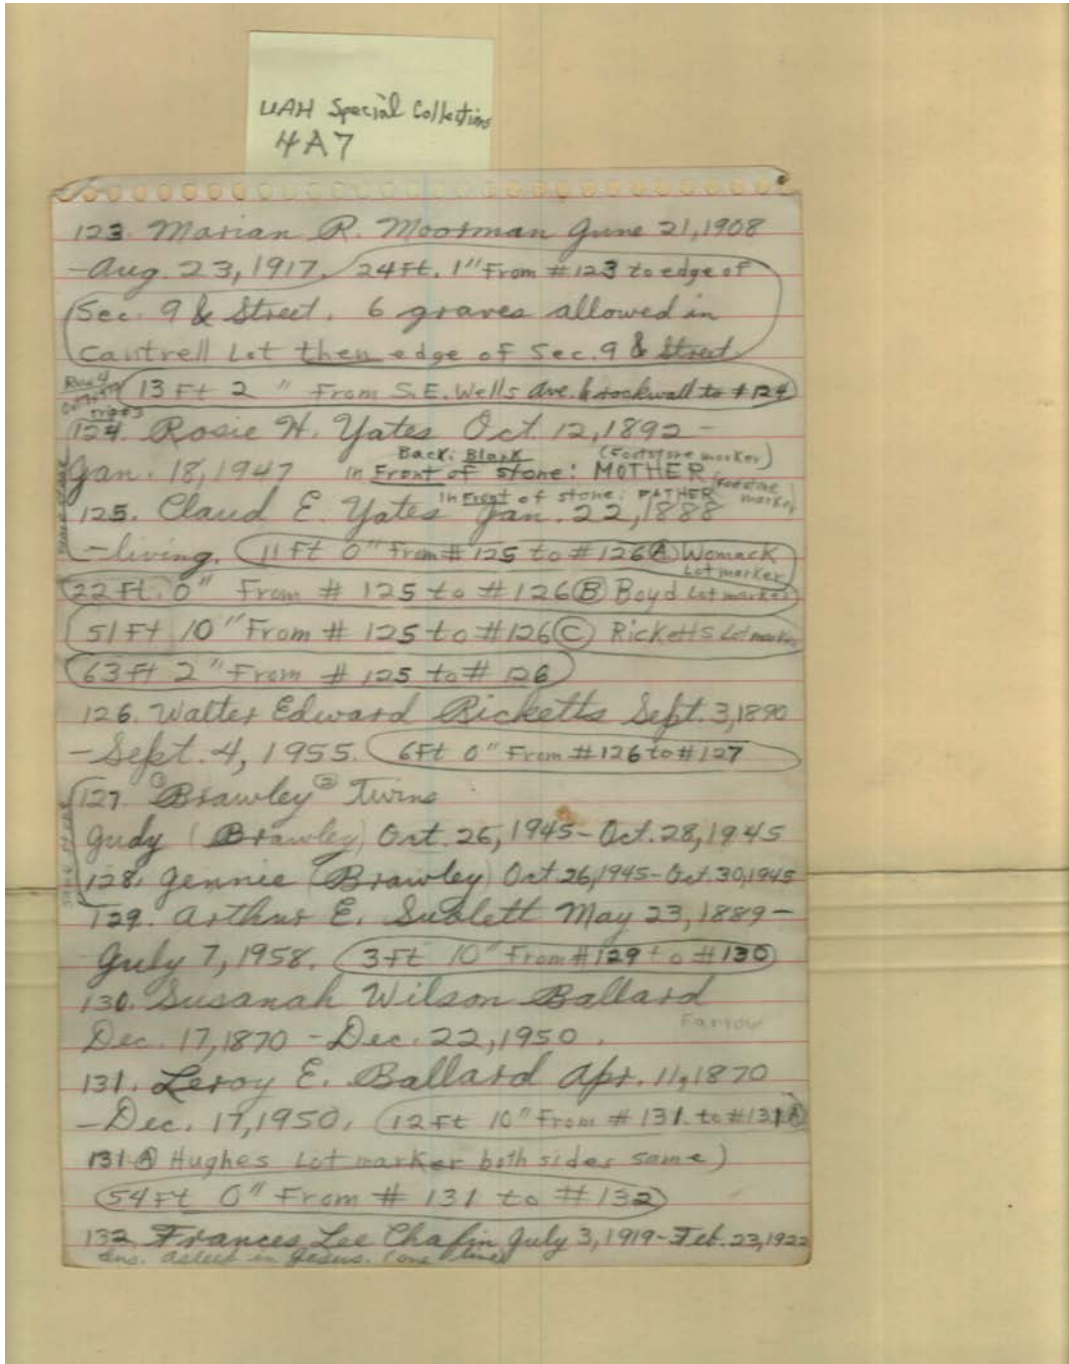 UAH Special Collections
4A7
123. Marian R. Moorman June 21, 1908
-Aug. 23, 1917. 24 Ft. 1" From #123 to edge of
Sec. 9 & Street. 6 graves allowed in
Cantrell Lot then edge of Sec. 9 & Street
Row 4
trip #3
13 Ft 2 " From S.E. Wells Ave. & rockwall to #124
124. Rosie H. Yates Oct. 12, 1892 -
Back: Blank (Footstone marker)
Jan. 18, 1947 in Front of stone: MOTHER
in Front of stone: FATHER (Footstone marker)
125. Claud E. Yates Jan. 22, 1888
- living. 11 Ft 0" From # 125 to # 126 Ⓐ Womack
Lot marker
22 Ft. 0" From # 125 to # 126 Ⓑ Boyd Lot marker
51 Ft 10" From # 125 to #126 Ⓒ Ricketts Lot marker
63 Ft 2" From # 125 to # 126
126. Walter Edward Ricketts Sept. 3, 1890
- Sept. 4, 1955. 6 Ft 0" From #126 to #127
127. ① Brawley ② Twins
Judy (Brawley) Oct. 26, 1945 - Oct. 28, 1945
128. Jennie (Brawley) Oct 26, 1945 - Oct. 30, 1945
129. Arthur E. Sublett May 23, 1889 -
July 7, 1958. 3 Ft 10" From #129 to #130
130. Susanah Wilson Ballard
Farlow
Dec. 17, 1870 - Dec. 22, 1950.
131. Leroy E. Ballard Apr. 11, 1870
- Dec. 17, 1950. 12 Ft 10" From # 131 to #131 Ⓐ
131 Ⓐ Hughes Lot marker both sides same)
54 Ft 0" From # 131 to # 132
132. Frances Lee Chafin July 3, 1919 - Feb. 23, 1922
Ins. Asleep in Jesus. (one line)